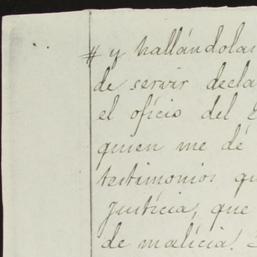 # y hallándolas
de servir decla
el oficio del
quien me dé
testimonios qu
Justicia, que
de malicia!